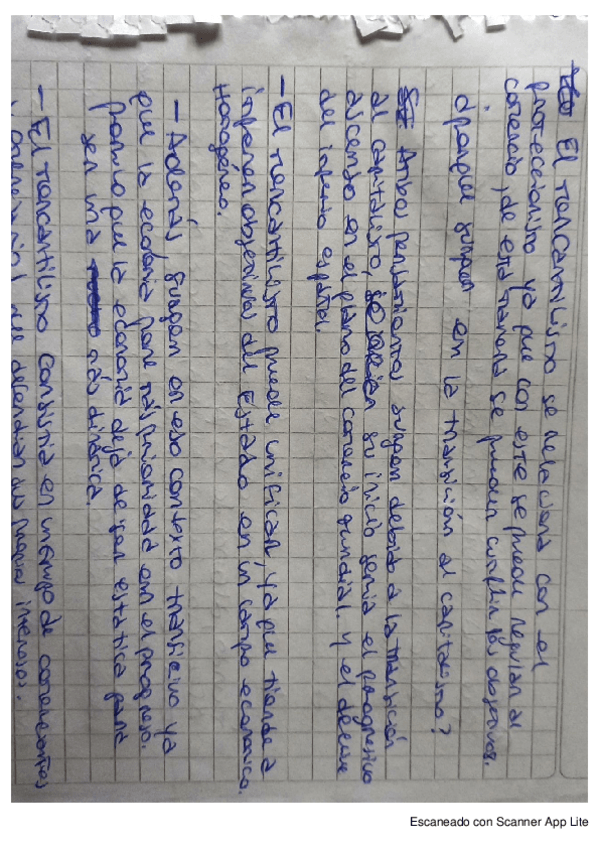 El mercantilismo se relaciona con el
proteccionismo ya que con este se puede regular el
comercio, de esta manera se pueden cumplir los objetivos.
¿porque surgen en la transición al capitalismo?
Ambos pensamientos surgen debido a la transición
al capitalismo, su inicio seria el progresivo
ascenso en el plano del comercio mundial. y el declive
del imperio español.
- El mercantilismo puede unificar, ya que tiende a
imponer objetivos del Estado en un campo economico
Homogéneo.
- Además surgen en ese contexto transitivo ya
que la economia pone más prioridad en el progreso.
que la economia deja de ser estática para
ser una más dinámica.
- El mercantilismo consistia en un grupo de comerciantes
que defendian sus propios intereses.
Escaneado con Scanner App Lite